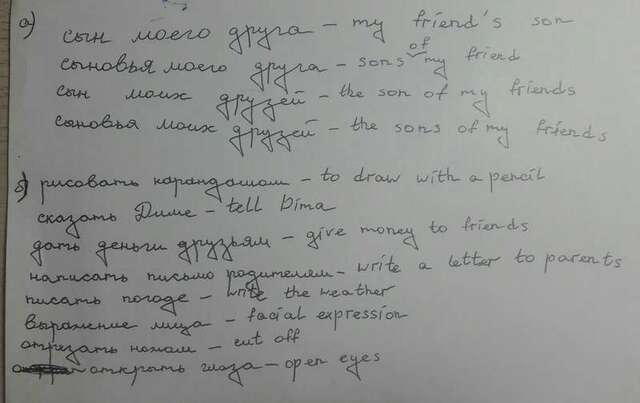 а) сын моего друга - my friend's son
сыновья моего друга - sons of my friend
сын моих друзей - the son of my friends
сыновья моих друзей - the sons of my friends
б) рисовать карандашом - to draw with a pencil
сказать Диме - tell Dima
дать деньги друзьям - give money to friends
написать письмо родителям - write a letter to parents
писать погоде - write the weather
выражение лица - facial expression
отрезать ножом - cut off
открыть глаза - open eyes